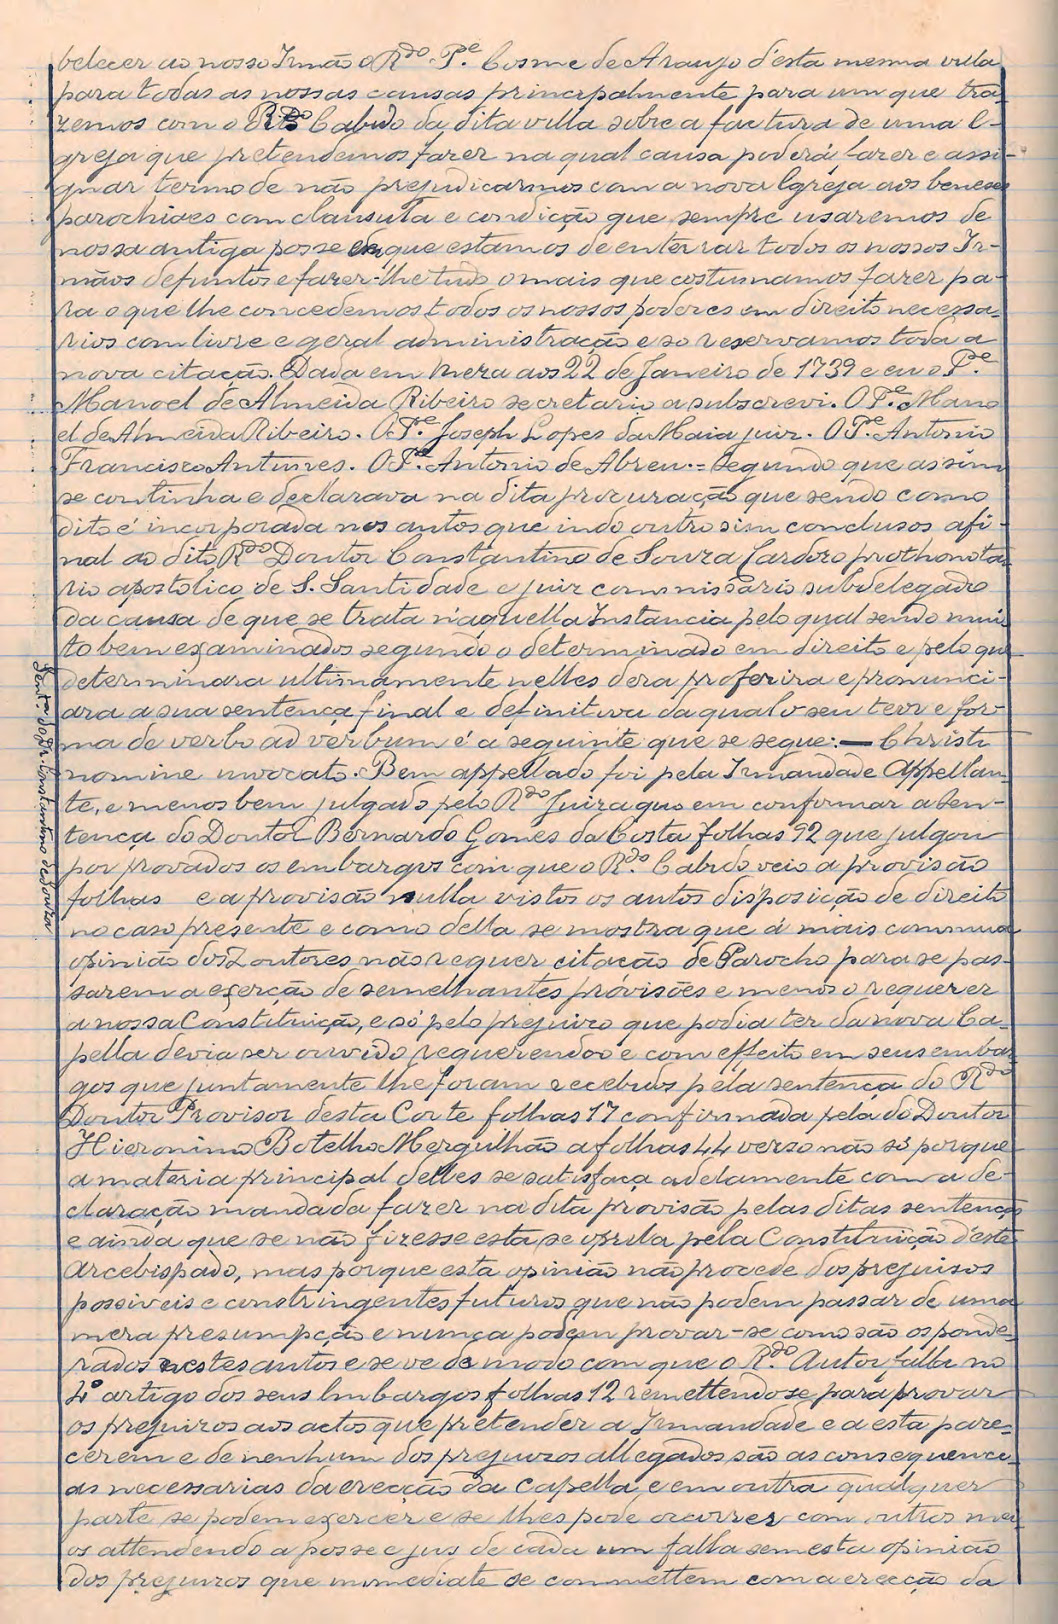 belecer ao nosso Irmão o Rdo. Pe. Cosme de Araujo d'esta mesma villa
para todas as nossas causas principalmente para um que tra-
zemos com o Rdo Cabido da dita villa sobre a factura de uma I-
greja que pretendemos fazer na qual causa poderá fazer e assi-
gnar termo de não prejudicarmos com a nova Igreja aos beneses
parochiaes com clausula e condição que sempre usaremos de
nossa antiga posse em que estamos de enterrar todos os nossos Ir-
mãos defuntos e fazer-lhe tudo o mais que costumamos fazer pa-
ra o que lhe concedemos todos os nossos poderes em direito necessa-
rios com livre e geral administração e so reservamos toda a
nova citação. Dada em Mera aos 22 de Janeiro de 1739 e eu o Pe.
Manoel de Almeida Ribeiro secretario a subscrevi. O Pe. Mano
el de Almeida Ribeiro. O Pe. Joseph Lopes da Maia juiz. O Pe. Antonio
Francisco Antunes. O Pe. Antonio de Abreu.= Segundo que assim
se continha e declarava na dita procuração que sendo como
dito é incorporada nos autos que indo outro sim conclusos afi-
nal ao dito Rdo Doutor Constantino de Souza Cardozo prothonota-
rio apostolico de S. Santidade e juiz commissario subdelegado
da causa de que se trata n'aquella Instancia pelo qual sendo mui-
to bem examinados segundo o determinado em direito e pelo que
determinara ultimamente nelles dera proferira e pronunci-
ara a sua sentença final e definitiva da qual o seu teor e for-
ma de verbo ad verbum é a seguinte que se segue: — Christi
nomine invocato. Bem appellado foi pela Irmandade Appellan-
te, e menos bem julgado pelo Rdo Juiz a quo em confirmar a Sen-
tença do Doutor Bernardo Gomes da Costa folhas 92 que julgou
por provados os embargos com que o Rdo. Cabido veio a provisão
folhas e a provisão nulla vistos os autos disposição de direito
no caso presente e como della se mostra que á mais commua
opinião dos Doutores não requer citação de Parocho para se pas-
sarem a exerção de semelhantes provisões e menos o requerer
a nossa Constituição, e só pelo prejuizo que podia ter da nova Ca-
pella devia ser ouvido requerendo o e com effeito em seus embar-
gos que juntamente lhe foram recebidos pela sentença do Rdo
Doutor Provisor desta Corte folhas 17 confirmada pela do Doutor
Hieronimo Botelho Mergulhão a folhas 44 verso não só porque
a materia principal delles se satisfaça adelamente com a de-
claração mandada fazer na dita provisão pelas ditas sentenças
e ainda que se não fizesse esta se pela Constituição d'este
Arcebispado, mas porque esta opinião não procede dos prejuisos
possiveis e constringentes futuros que não podem passar de uma
mera presumpção e nunca podem provar-se como são os ponde-
rados nestes autos e se ve do modo com que o Rdo. Autor falla no
4º artigo dos seus Embargos folhas 12 remettendo se para provar
os prejuizos aos actos que pretender a Irmandade e a esta pare-
cerem e de nenhum dos prejuizos allegados são as consequenci-
as necessarias da erecção da Capella e em outra qualquer
parte se podem exercer e se lhes pode ocurrer com outros mei-
os attendendo a posse e jus de cada um falla sem esta opinião
dos prejuizos que immediate se commettem com a erecção da
Sentça do Dr. Constantino de Souza